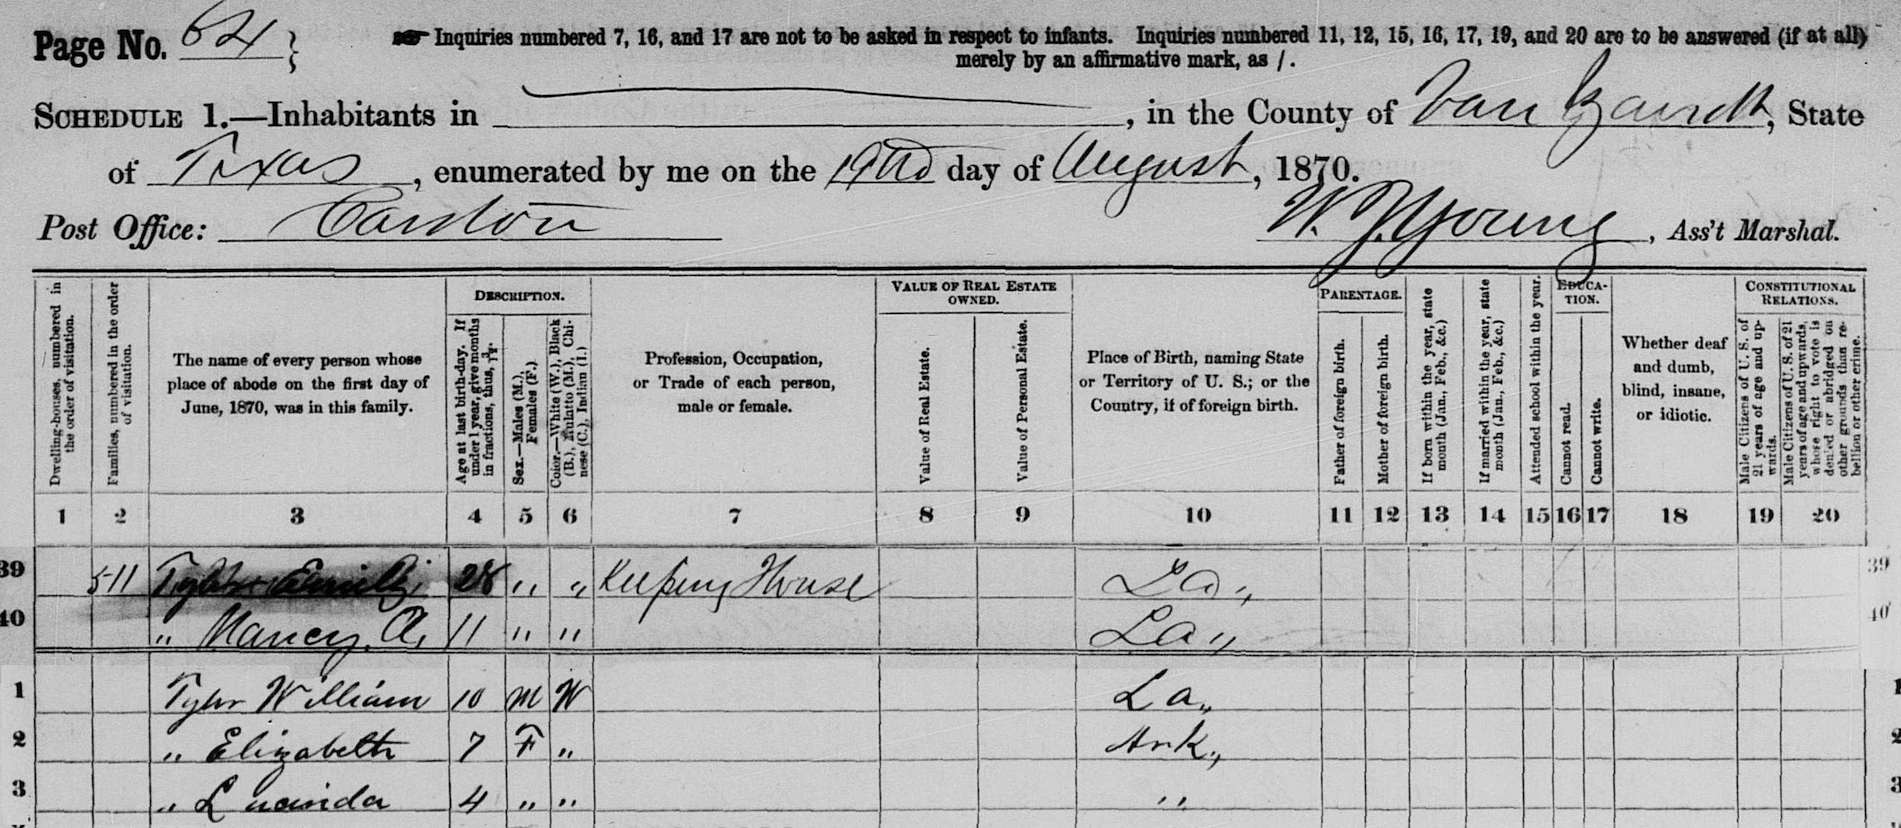 Page No. 64
Inquiries numbered 7, 16, and 17 are not to be asked in respect to infants. Inquiries numbered 11, 12, 15, 16, 17, 19, and 20 are to be answered (if at all)
merely by an affirmative mark, as /.
SCHEDULE 1.—Inhabitants in , in the County of Van Zandt, State
of Texas, enumerated by me on the day of August, 1870.
Post Office: Canton W. J. Young, Ass't Marshal.
Dwelling-houses, numbered in the order of visitation.
Families, numbered in the order of visitation.
The name of every person whose place of abode on the first day of June, 1870, was in this family.
DESCRIPTION.
Age at last birth-day. If under 1 year, give months in fractions, thus, 3/12.
Sex.—Males (M.), Females (F.).
Color.—White (W.), Black (B.), Mulatto (M.), Chinese (C.), Indian (I.)
Profession, Occupation, or Trade of each person, male or female.
VALUE OF REAL ESTATE OWNED.
Value of Real Estate.
Value of Personal Estate.
Place of Birth, naming State or Territory of U. S.; or the Country, if of foreign birth.
PARENTAGE.
Father of foreign birth.
Mother of foreign birth.
If born within the year, state month (Jan., Feb., &c.)
If married within the year, state month (Jan., Feb., &c.)
Attended school within the year.
EDUCATION.
Cannot read.
Cannot write.
Whether deaf and dumb, blind, insane, or idiotic.
CONSTITUTIONAL RELATIONS.
Male Citizens of U. S. of 21 years of age and upwards.
Male Citizens of U. S. of 21 years of age and upwards, whose right to vote is denied or abridged on other grounds than rebellion or other crime.
1 2 3 4 5 6 7 8 9 10 11 12 13 14 15 16 17 18 19 20
39 511 Tyler 28 " " Keeping House La " 39
40 " Nancy A. 11 " " La " 40
1 Tyler William 10 M W La " 1
2 " Elizabeth 7 F " Ark " 2
3 " Lucinda 4 " " " 3